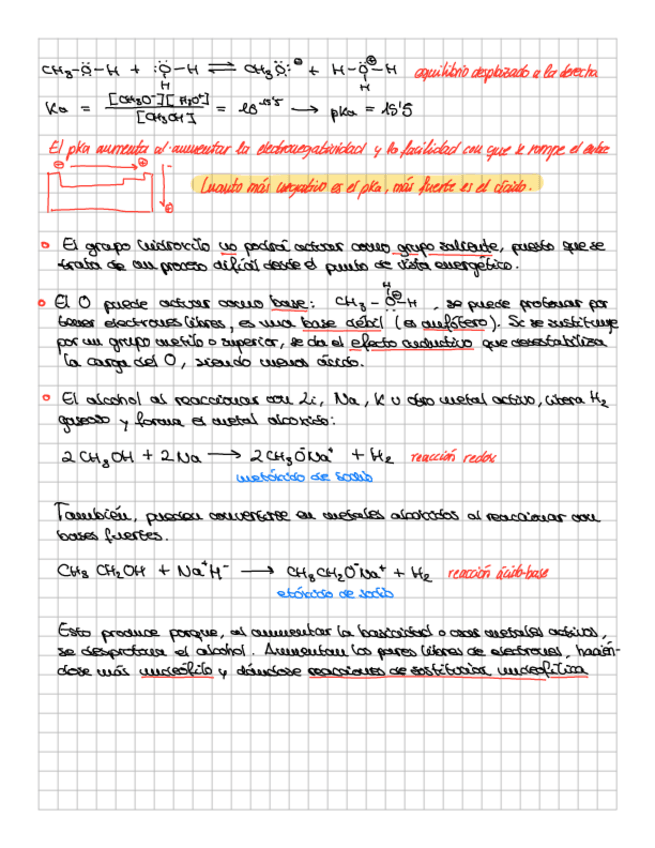 CH₃-Ö-H + :Ö-H ⇌ CH₃Ö:⊖ + H-Ö⊕-H equilibrio desplazado a la derecha
H H
Ka = [CH₃O⁻][H₃O⁺] / [CH₃OH] = 10⁻¹⁵'⁵ → pKa = 15'5
El pKa aumenta al aumentar la electronegatividad y la facilidad con que se rompe el enlace
⊕ → ⊕ -
Cuanto más negativo es el pKa, más fuerte es el ácido.
⊕
El grupo hidroxilo no podrá actuar como grupo saliente, puesto que se
trata de un proceso difícil desde el punto de vista energético.
El O puede actuar como base: CH₃-O⊕-H, se puede protonar por
H
tener electrones libres, es una base débil (es anfótero). Si se sustituye
por un grupo metilo o superior, se da el efecto inductivo que desestabiliza
la carga del O, siendo menos ácido.
El alcohol al reaccionar con Li, Na, K u otro metal activo, libera H₂
gaseoso y forma el metal alcóxido:
2CH₃OH + 2Na → 2CH₃O⁻Na⁺ + H₂ reacción redox
metóxido de sodio
También, pueden convertirse en metales alcóxidos al reaccionar con
bases fuertes.
CH₃CH₂OH + Na⁺H⁻ → CH₃CH₂O⁻Na⁺ + H₂ reacción ácido-base
etóxido de sodio
Esto produce porque, al aumentar la basicidad o usas metales activos,
se desprotona el alcohol. Aumentan los pares libres de electrones, hacién-
dose más nucleófilo y dándose reacciones de sustitución nucleofílica